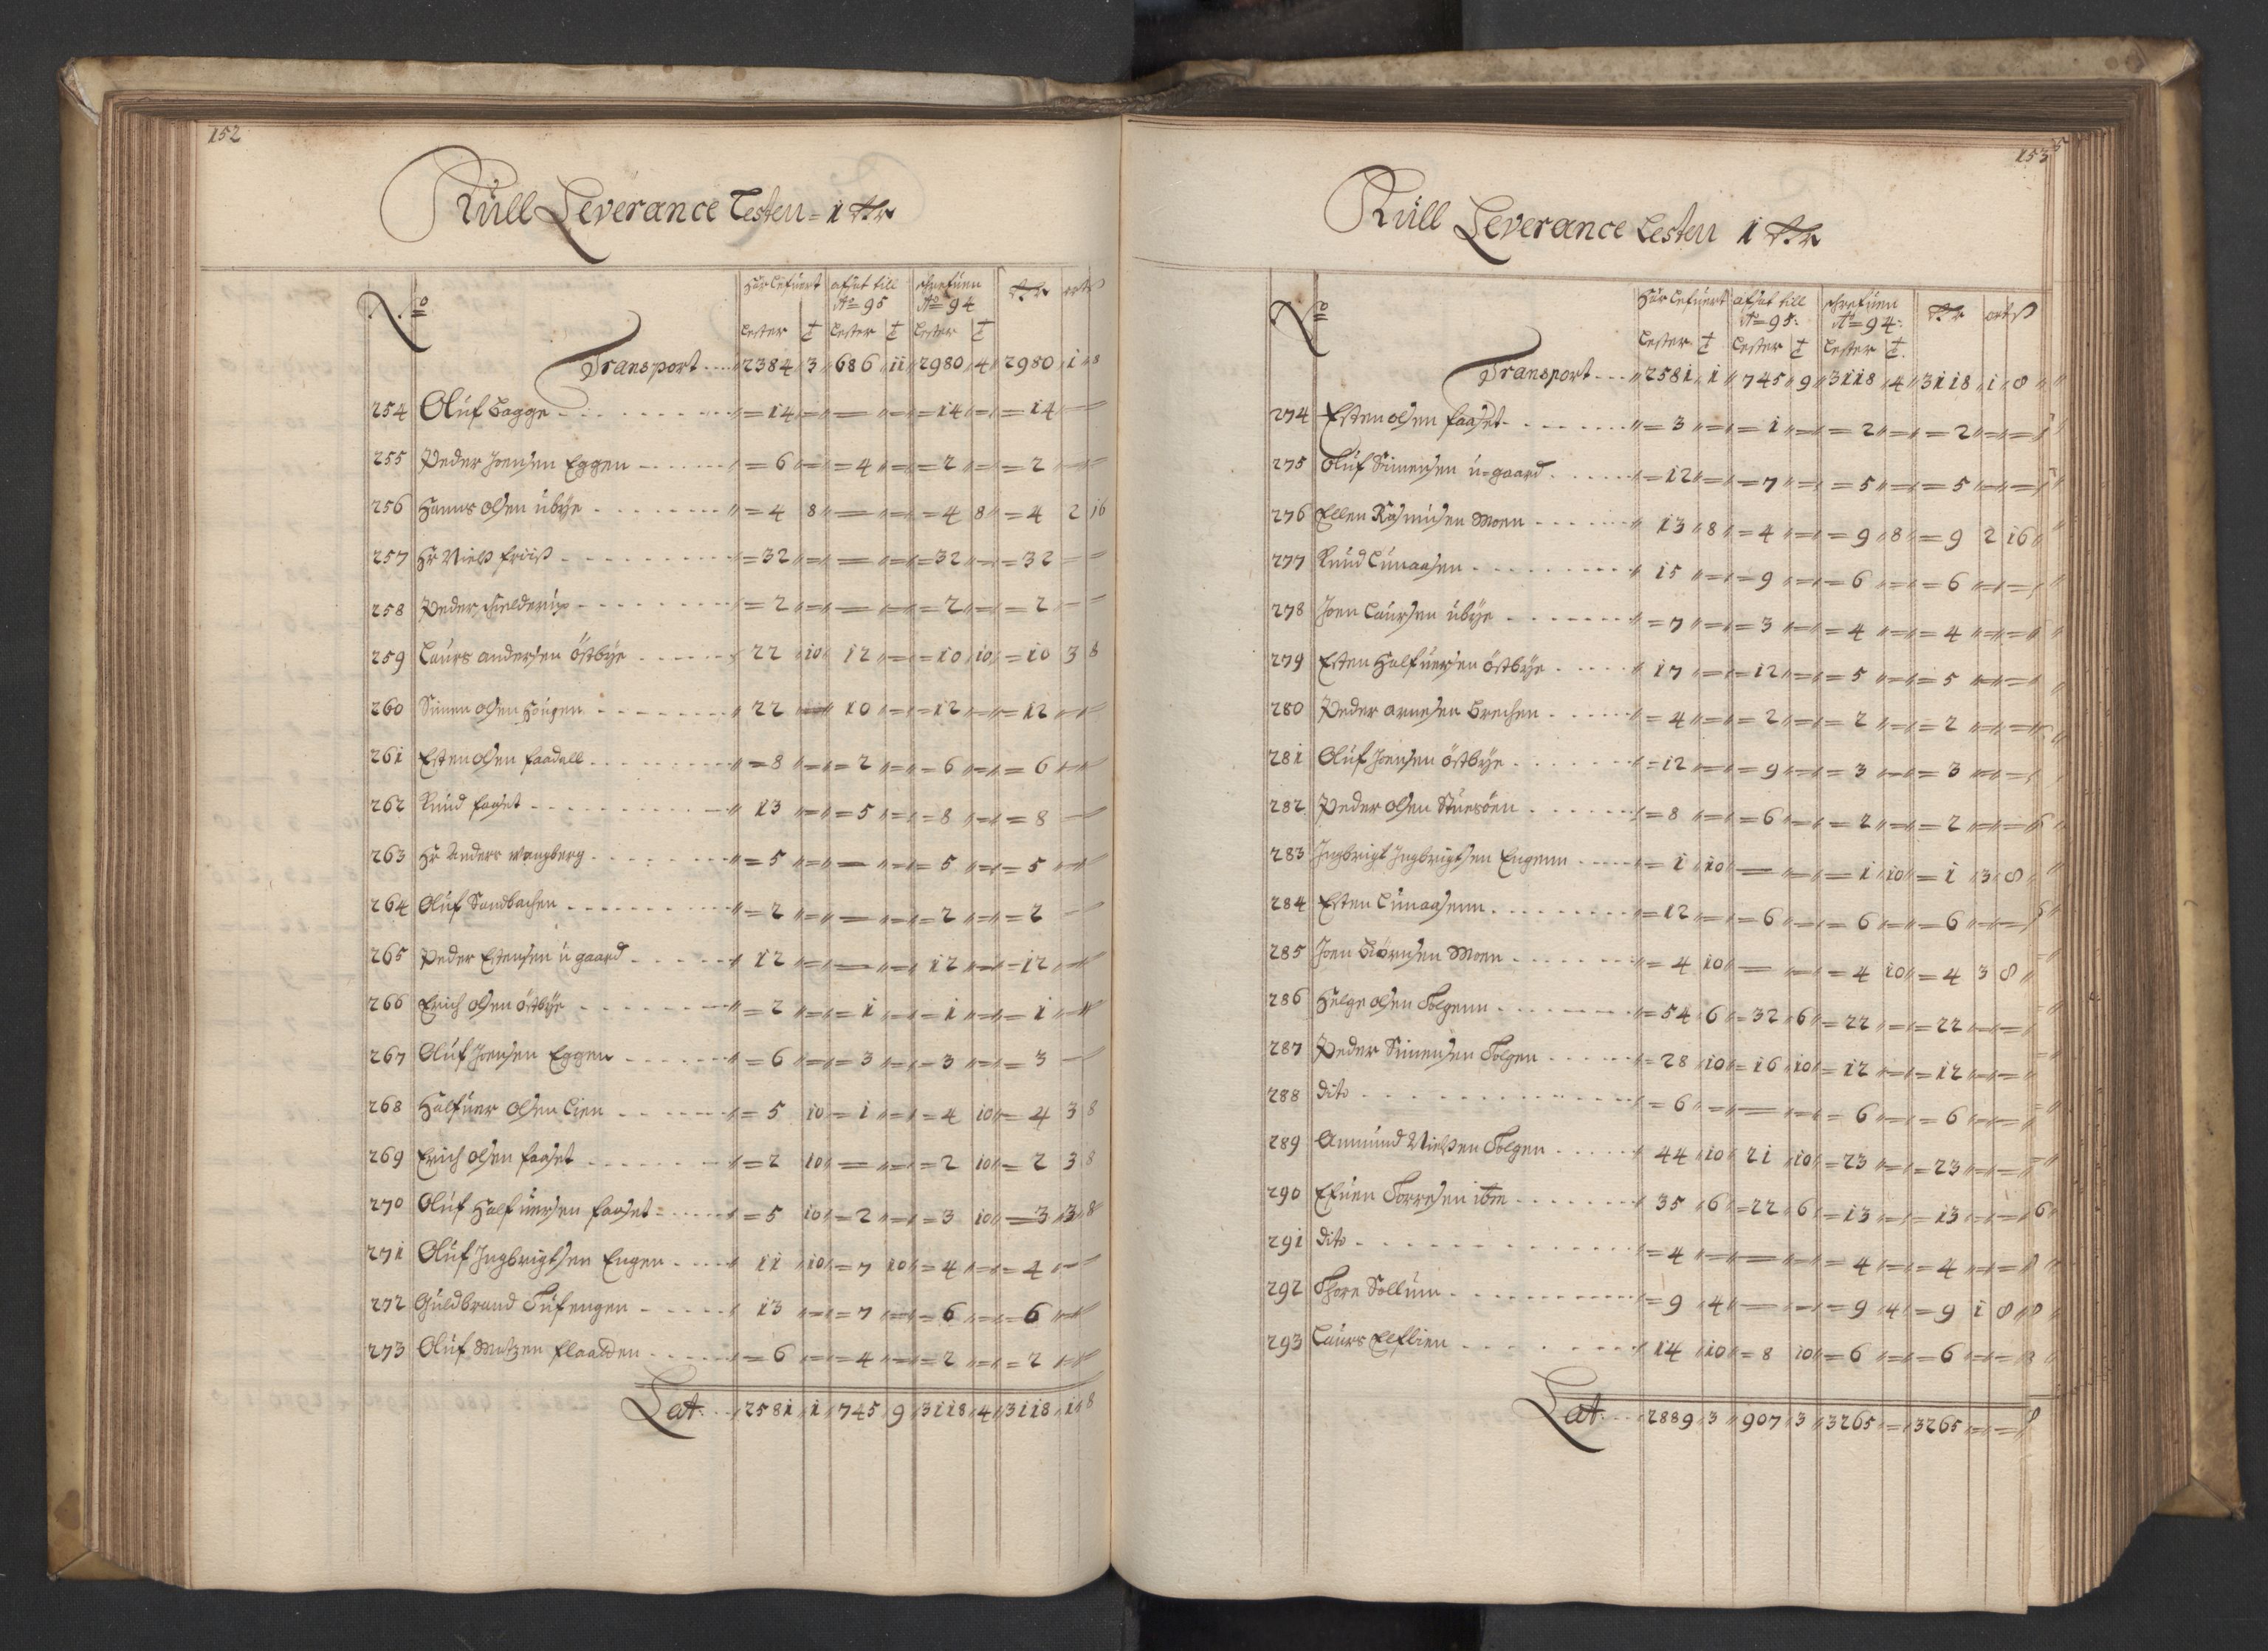 152
Kull Leverance Lesten = 1 Rdr
No
Har Lefuert afsat till schrefuen Rdr ort ß
Ao = 95 Ao = 94
Lester t Lester t Lester t
Transport 2384 3 686 11 2980 4 2980 1 8
254 Oluf Bagge = 14 = = = = 14 = = 14 =
255 Peder Joensen Eggen = 6 = = 4 = = 2 = = 2 =
256 Hanns Olsen übÿe = 4 8 = = = 4 8 = 4 2 16
257 Hr Niels Friiß = 32 = = = = 32 = = 32 =
258 Peder Hielderup = 2 = = = = 2 = = 2 =
259 Laurs Andersen östbÿe 22 10 12 = = 10 10 = 10 3 8
260 Simen Olsen Hougen 22 = 10 = = 12 = = 12 =
261 Esten Olsen Faadall = 8 = = 2 = = 6 = = 6 =
262 Knud Faaset 13 = = 5 = = 8 = = 8 =
263 Hr Anders Wangberg = 5 = = = = 5 = = 5 =
264 Oluf Sandbachen = 2 = = = = 2 = = 2 =
265 Peder Estensen ügaard 12 = = = 12 = = 12 =
266 Erich Olsen östbÿe = 2 = = 1 = = 1 = = 1 =
267 Oluf Joensen Eggen = 6 = = 3 = = 3 = = 3 =
268 Halfuer Olsen Lien = 5 10 = 1 = = 4 10 = 4 3 8
269 Erich Olsen Faaset = 2 10 = = = 2 10 = 2 3 8
270 Oluf Halfuersen Faaset = 5 10 = 2 = = 3 10 = 3 3 8
271 Oluf Ingbrigtsen Engen 11 10 = 7 10 = 4 = = 4 =
272 Guldbrand Tufengen 13 = = 7 = = 6 = = 6 =
273 Oluf Matzen Flaadden = 6 = = 4 = = 2 = = 2 =
Lat 2581 1 745 9 3118 4 3118 1 8
153
Kull Leverance Lesten 1 Rdr
No
Har Lefuert afsat till schrefuen Rdr ort ß
Ao = 95: Ao = 94:
Lester t Lester t Lester t
Transport 2581 1 745 9 3118 4 3118 1 8
274 Esten Olsen Faaset = 3 = = 1 = = 2 = = 2 = =
275 Oluf Simensen ü=gaard = 12 = = 7 = = 5 = = 5 = =
276 Ellen Rasmusen Moen 13 8 = 4 = = 9 8 = 9 2 16
277 Knud Lunaasen 15 = = 9 = = 6 = = 6 = =
278 Joen Laursen übÿe = 7 = = 3 = = 4 = = 4 = =
279 Esten Halfuersen östbÿe 17 = = 12 = = 5 = = 5 = =
280 Peder Arnesen Brechen = 4 = = 2 = = 2 = = 2 = =
281 Oluf Joensen östbÿe = 12 = = 9 = = 3 = = 3 = =
282 Peder Olsen Stuesöen = 8 = = 6 = = 2 = = 2 = =
283 Ingbrigt Ingbrigtsen Engenn = 1 10 = = = 1 10 = 1 3 8
284 Esten Lunaasenn = 12 = = 6 = = 6 = = 6 = =
285 Joen Biörnsen Moen = 4 10 = = = 4 10 = 4 3 8
286 Helge Olsen Tolgenn = 54 6 = 32 6 = 22 = = 22 = =
287 Peder Simensen Tolgen = 28 10 = 16 10 = 12 = = 12 = =
288 dito = 6 = = = = 6 = = 6 = =
289 Ammund Nielsen Tolgen 44 10 21 10 = 23 = = 23 = =
290 Efuen Torresen ibm 35 6 = 22 6 = 13 = = 13 = =
291 dito = 4 = = = = 4 = = 4 = =
292 Thore Sollum = 9 4 = = = 9 4 = 9 1 8
293 Laurs Elflien 14 10 = 8 10 = 6 = = 6 = =
Lat: 2889 3 907 3 3265 = 3265 = =